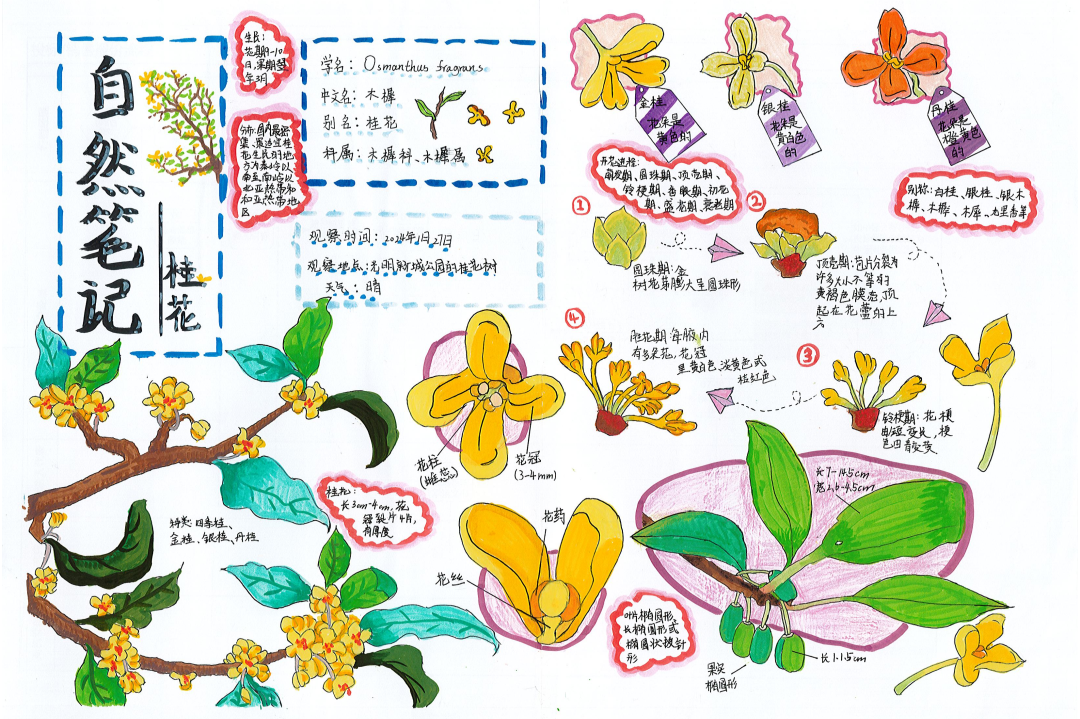 自然笔记
桂花
生长:
花期9-10
月,果期翌
年3月
学名: Osmanthus fragrans
中文名: 木樨
别名: 桂花
科属: 木樨科、木樨属
观察时间: 2024年1月27日
观察地点: 光明新城公园的桂花树
天气: 晴
金桂
花朵是
黄色的
银桂
花朵是
黄白色
的
丹桂
花朵是
橙黄色
的
开花进程:
萌发期、圆珠期、顶壳期、
铃梗期、香眼期、初花
期、盛花期、衰老期
别称: 白桂、银桂、银木
樨、木樨、木犀、九里香等
①
圆珠期: 金
树花芽膨大呈圆珠形
②
顶壳期: 苞片分裂为
许多大小不等的
黄褐色膜壳,顶
起在花蕾的上
方
③
铃梗期: 花梗
由短变长,梗
色由青变黄
④
有多朵花,花冠
呈黄白色、淡黄色或
桔红色
花柱
花冠
(3-4mm)
桂花:
长3cm-4cm,花
冠裂片4片,
有厚度
种类: 四季桂、
金桂、银桂、丹桂
花药
花丝
长7-14.5cm
宽2.6-4.5cm
叶片椭圆形、
长椭圆形或
椭圆状披针
形
果实
椭圆形
长1-1.5cm